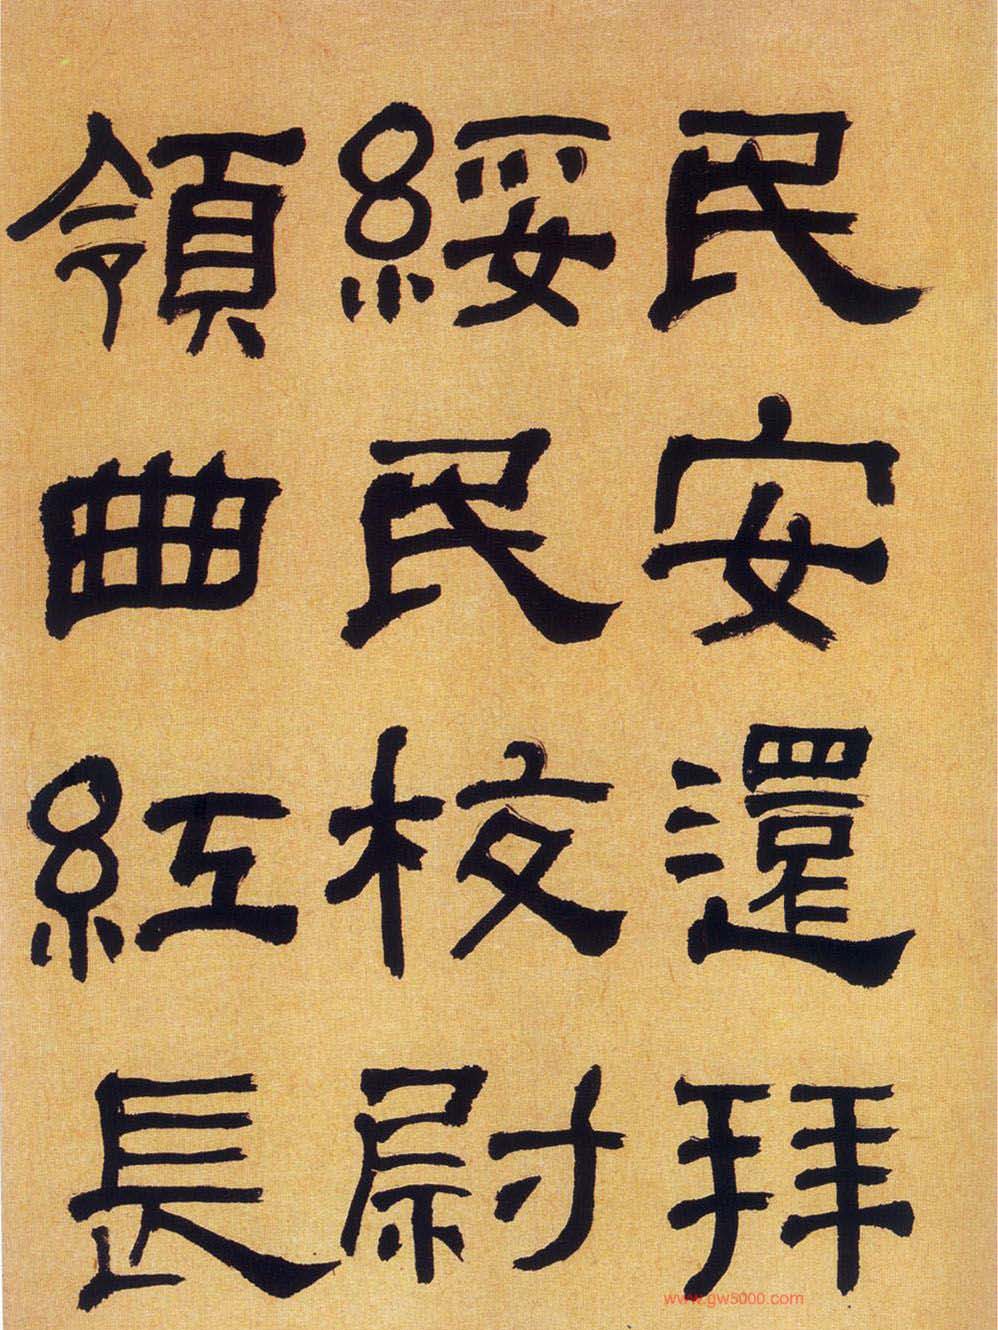 民安還拜
綏民校尉
領曲紅長
www.gw5000.com